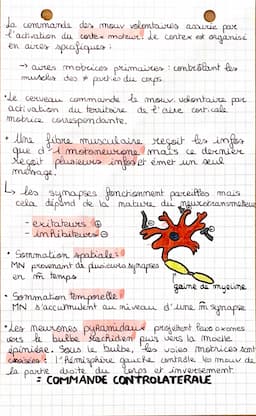 La commande des mouv volontaires assurée par
l'activation du cortex moteur. Le cortex est organisé
en aires spécifiques :
→ aires motrices primaires : contrôlant les
muscles des ≠ parties du corps.
• Le cerveau commande le mouv. volontaire par
activation du territoire de l'aire corticale
motrice correspondante.
• Une fibre musculaire reçoit les infos
que d'1 motoneurone mais ce dernier
reçoit plusieurs infos et émet un seul
message.
↳ les synapses fonctionnent pareilles mais
cela dépend de la nature du neurotransmetteur
- exitateurs ⊕
- inhibiteurs ⊖
• Sommation spatiale :
MN provenant de plusieurs synapses
en m̂ temps
gaine de myéline
• Sommation temporelle
MN s'accumulent au niveau d'une m̂ synapse
• Les neurones pyramidaux projettent leurs axones
vers le bulbe rachidien puis vers la moelle
épinière. Sous le bulbe, les voies motrices sont
croisées : l'hémisphère gauche contrôle les mouv de
la partie droite du corps et inversement.
= COMMANDE CONTROLATERALE